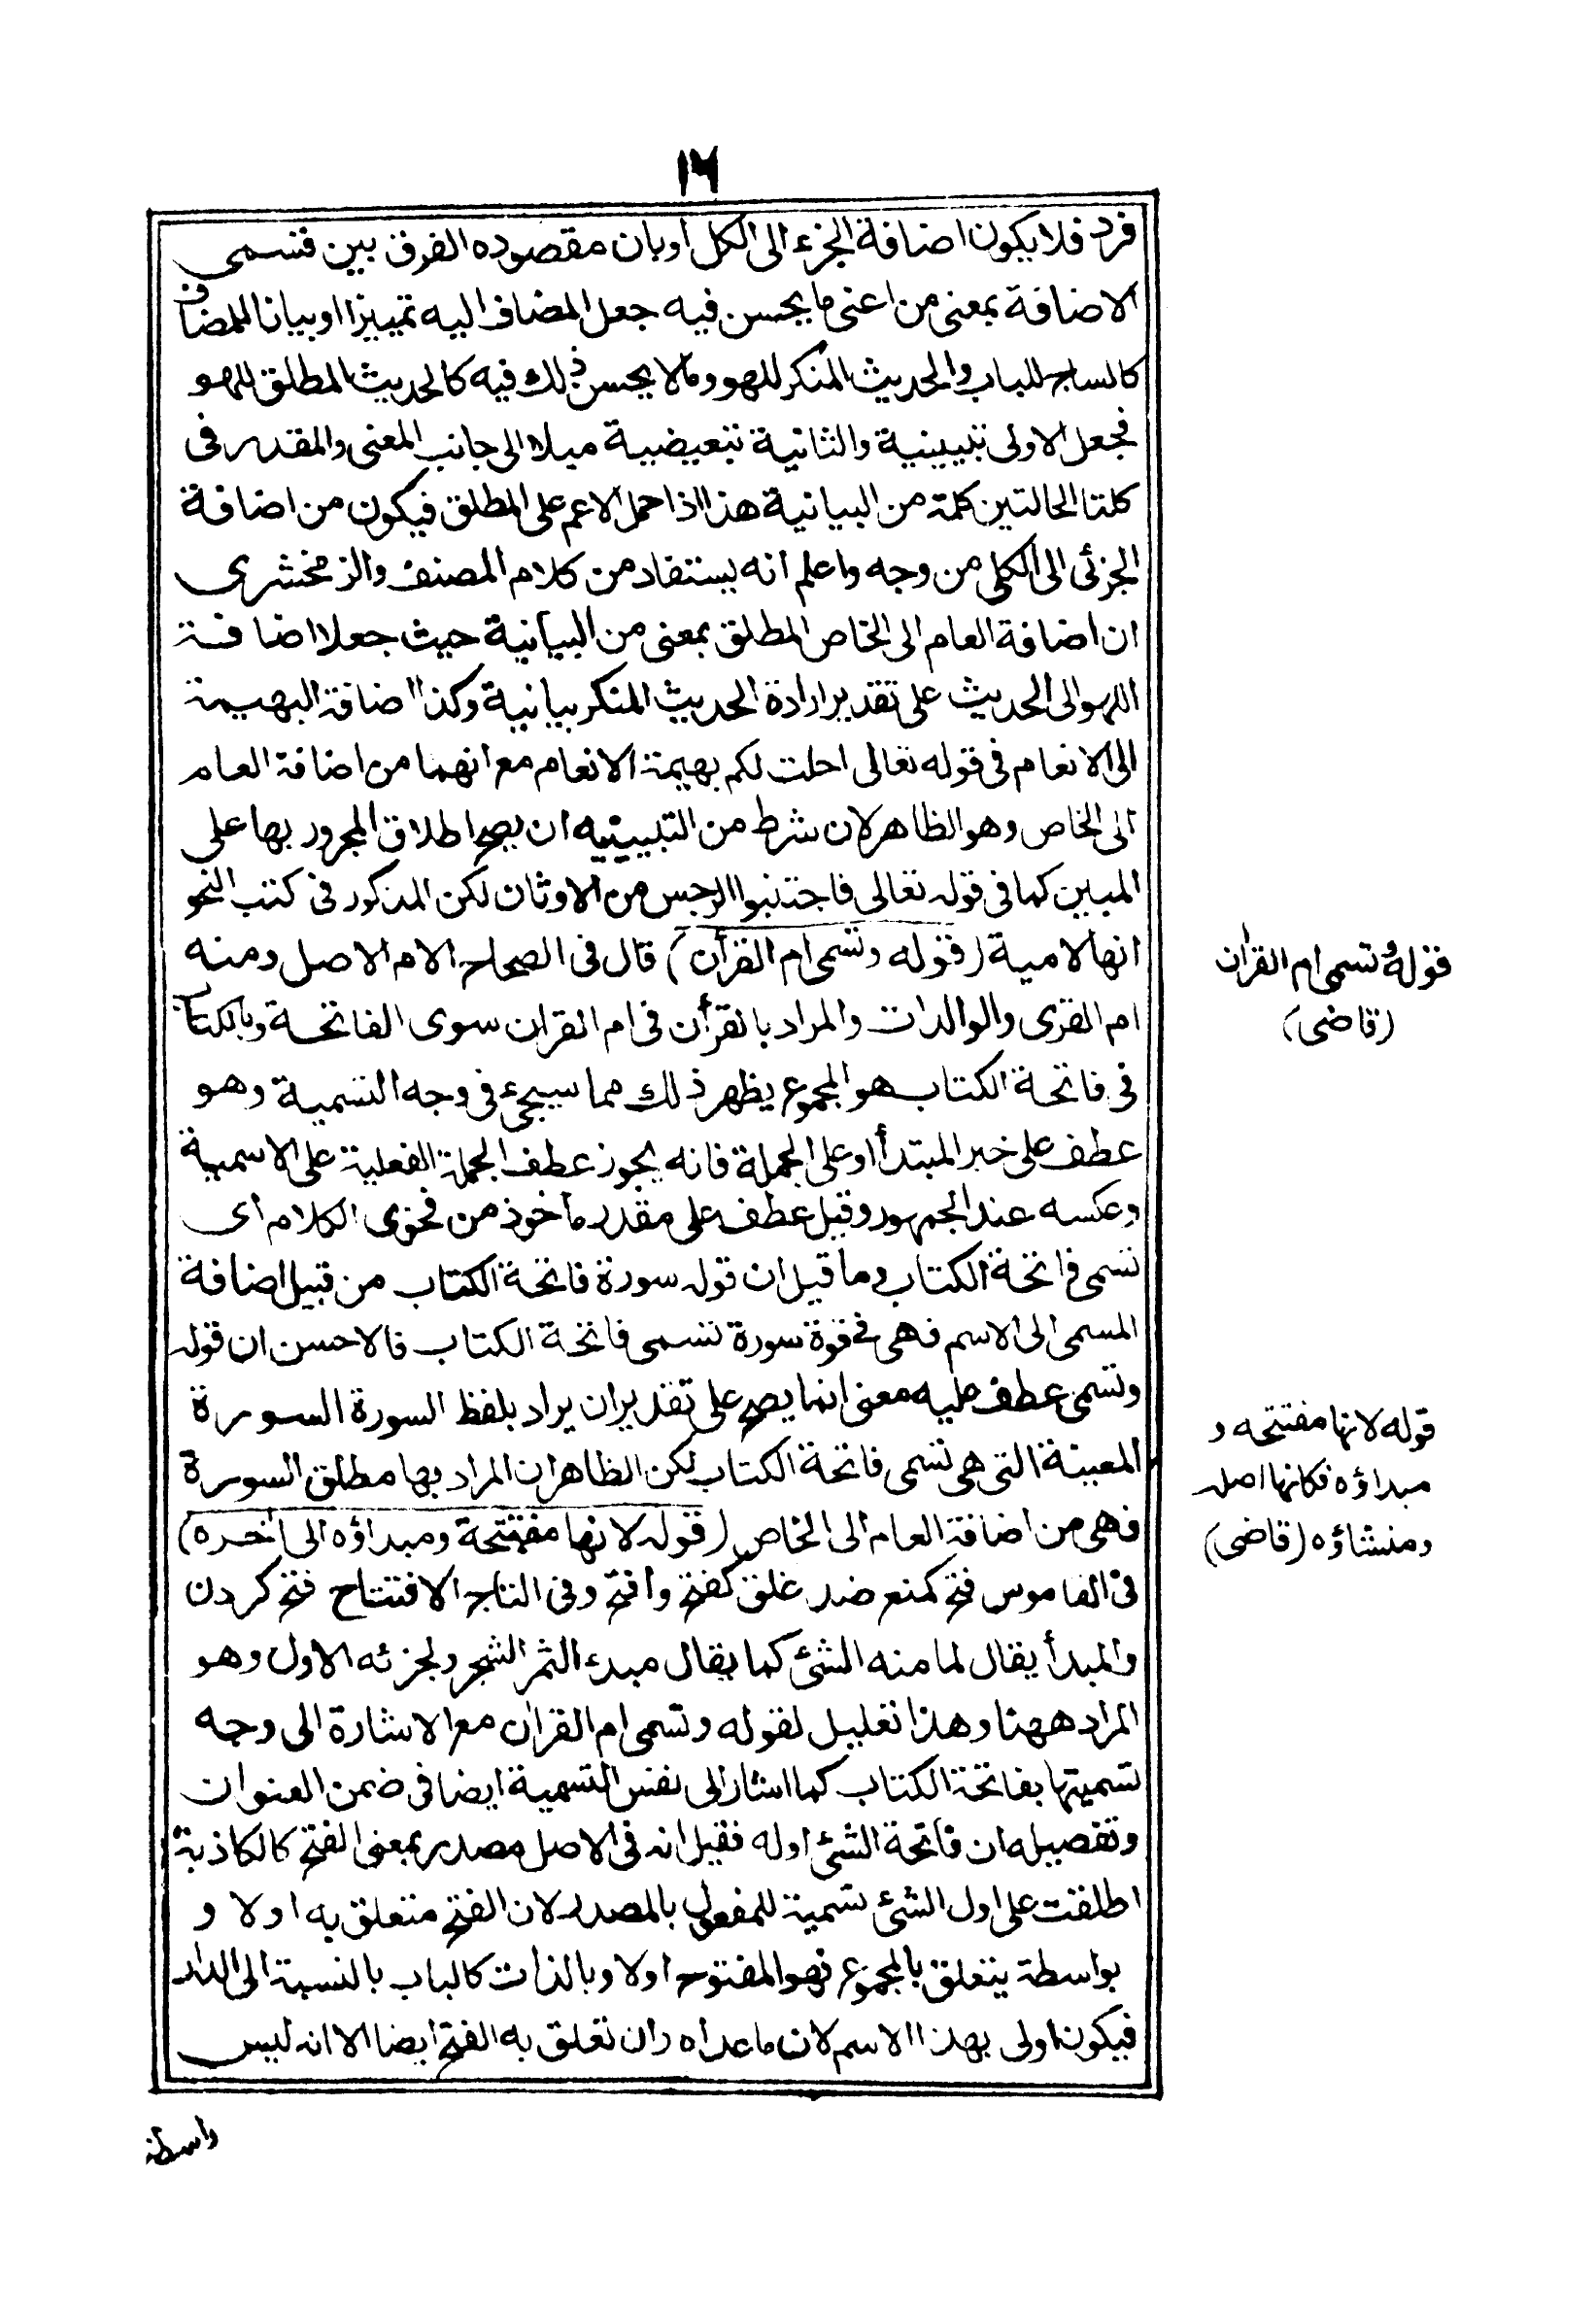 ١٦
فرد فلا يكون اضافة الجزء الى الكل او بان مقصوده الفرق بين قسمى
الاضافة بمعنى من اعنى ما يحسن فيه جعل المضاف اليه تمييزا او بيانا للمضاف
كالساج للباب والحديث المنكر للهو وما لا يحسن ذلك فيه كالحديث المطلق للهو
فجعل الاولى تبيينية والثانية تبعيضية ميلا الى جانب المعنى والمقدر فى
كلتا الحالتين كلمة من البيانية هذا اذا حمل الاعم على المطلق فيكون من اضافة
الجزئى الى الكلى من وجه واعلم انه يستفاد من كلام المصنف والزمخشرى
ان اضافة العام الى الخاص المطلق بمعنى من البيانية حيث جعلا اضافة
اللهو الى الحديث على تقدير ارادة الحديث المنكر بيانية وكذا اضافة البهيمة
الى الانعام فى قوله تعالى احلت لكم بهيمة الانعام مع انهما من اضافة العام
الى الخاص وهو الظاهر لان شرط من التبيينيه ان يصح اطلاق المجرور بها على
المبين كما فى قوله تعالى فاجتنبوا الرجس من الاوثان لكن المذكور فى كتب النحو
انها لامية (قوله وتسمى ام القرأن) قال فى الصحاح الام الاصل ومنه
ام القرى والوالدات والمراد بالقرأن فى ام القران سوى الفاتحة وبالكتاب
فى فاتحة الكتاب هو المجموع يظهر ذلك مما سيجىء فى وجه التسمية وهو
عطف على خبر المبتدأ او على الجملة فانه يجوز عطف الجملة الفعلية على الاسمية
وعكسه عند الجمهور وقيل عطف على مقدر مأخوذ من فحوى الكلام اى
تسمى فاتحة الكتاب وما قيل ان قوله سورة فاتحة الكتاب من قبيل اضافة
المسمى الى الاسم فهى فى قوة سورة تسمى فاتحة الكتاب فالاحسن ان قوله
وتسمى عطف عليه معنى انما يصح على تقدير ان يراد بلفظ السورة السورة
المعينة التى هى تسمى فاتحة الكتاب لكن الظاهر ان المراد بها مطلق السورة
فهى من اضافة العام الى الخاص (قوله لانها مفتتحة ومبداؤه الى أخره)
فى القاموس فتح كمنع ضد غلق كفتح وافتح وفى التاج الافتتاح فتح كردن
والمبدأ يقال لما منه الشئ كما يقال مبدء الثمر الشجر ولجزئه الاول وهو
المراد ههنا وهذا تعليل لقوله وتسمى ام القران مع الاشارة الى وجه
تسميتها بفاتحة الكتاب كما اشار الى نفس التسمية ايضا فى ضمن العنوان
وتفصيله ان فاتحة الشئ اوله فقيل انه فى الاصل مصدر بمعنى الفتح كالكاذبة
اطلقت على اول الشئ تسمية للمفعول بالمصدر لان الفتح متعلق به اولا و
بواسطة يتعلق بالمجموع فهو المفتوح اولا وبالذات كالباب بالنسبة الى الدار
فيكون اولى بهذا الاسم لان ماعداه وان تعلق به الفتح ايضا الا انه ليس
واسطة
قوله وتسمى ام القران
(قاضى)
قوله لانها مفتتحه و
مبداؤه فكانها اصله
ومنشاؤه (قاضى)